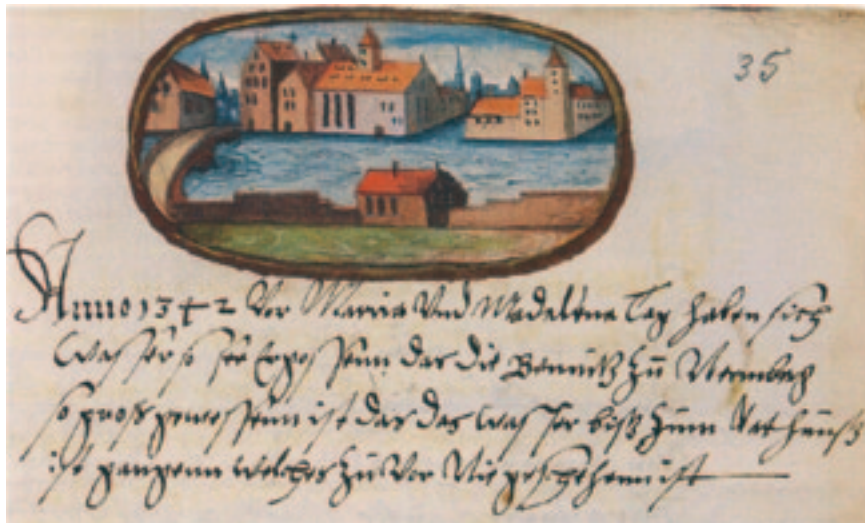 35
Anno 1342 Vor Maria Vnd Madelena Tag haben sich
Wasser so ser das die zu
so groß gewessenn ist das das Wasser biß zum Rathauß
ist ganngenn welches zu Vor Nie geschehenn ist